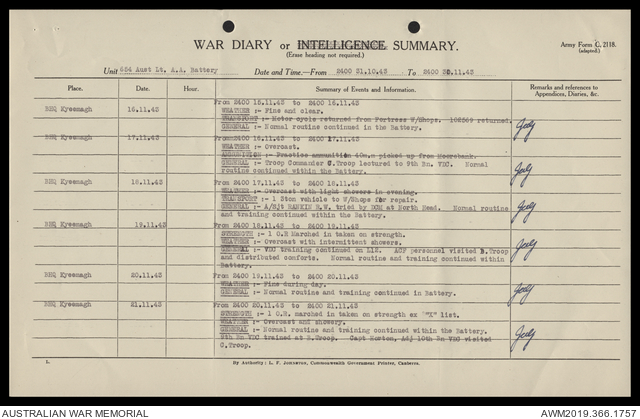 WAR DIARY or INTELLIGENCE SUMMARY.
(Erase heading not required.)
Army Form C. 2118.
(adapted.)
Unit 654 Aust Lt. A.A. Battery Date and Time.—From 2400 31.10.43 To 2400 30.11.43
Place. Date. Hour. Summary of Events and Information. Remarks and references to Appendices, Diaries, &c.
BHQ Kyeemagh 16.11.43
From 2400 15.11.43 to 2400 16.11.43
WEATHER :- Fine and clear.
TRANSPORT:- Motor cycle returned from Fortress W/Shops. 102569 returned.
GENERAL :- Normal routine continued in the Battery.
BHQ Kyeemagh 17.11.43
From 2400 16.11.43 to 2400 17.11.43
WEATHER :- Overcast.
AMMUNITION :- Practice ammunition 40m.m picked up from Moorebank.
GENERAL :- Troop Commander C.Troop lectured to 9th Bn. VDC. Normal
routine continued within the Battery.
BHQ Kyeemagh 18.11.43
From 2400 17.11.43 to 2400 18.11.43
WEATHER :- Overcast with light showers in evening.
TRANSPORT :- 1 3ton vehicle to W/Shops for repair.
GENERAL :- A/Sjt RANKIN R.W. tried by DCM at North Head. Normal routine
and training continued within the Battery.
BHQ Kyeemagh 19.11.43
From 2400 18.11.43 to 2400 19.11.43
STRENGTH :- 1 O.R Marched in taken on strength.
WEATHER :- Overcast with intermittent showers.
GENERAL :- VDC training continued on L12. ACF personnel visited B.Troop
and distributed comforts. Normal routine and training continued within
Battery.
BHQ Kyeemagh 20.11.43
From 2400 19.11.43 to 2400 20.11.43
WEATHER :- Fine during day.
GENERAL :- Normal routine and training continued in Battery.
BHQ Kyeemagh 21.11.43
From 2400 20.11.43 to 2400 21.11.43
STRENGTH :- 1 O.R. marched in taken on strength ex "X" list.
WEATHER :- Overcast and showery.
GENERAL :- Normal routine and training continued within the Battery.
9th Bn VDC trained at B.Troop. Capt Horton, Adj 10th Bn VDC visited
C.Troop.
By Authority: L. F. Johnston, Commonwealth Government Printer, Canberra.
AUSTRALIAN WAR MEMORIAL
AWM2019.366.1757